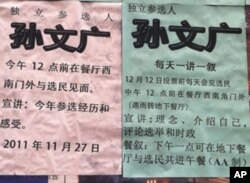 独立参选人
孙文广
今年 12 点前在餐厅西
南门外与选民见面。
宣讲:今年参选经历和
感受。
2011 年 11 月 27 日
独立参选人
孙文广
每天一讲一叙
12月12日投票前每天会见选民
中午 12 点前在餐厅西南角门外
(遇雨转地下餐厅)
宣讲:理念、介绍自己,
评论选举和时政
餐叙:下午一点可在地下餐
厅与选民共进午餐(AA 制
AP